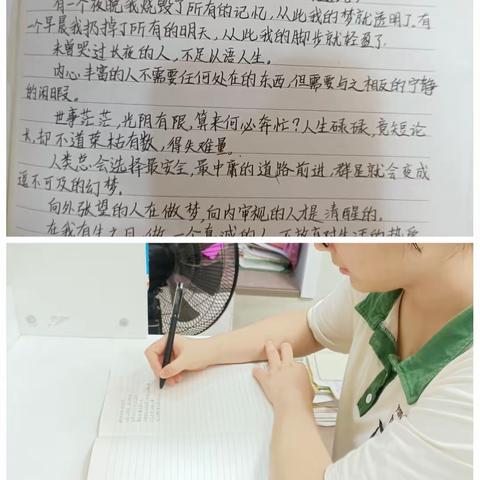 有一个夜晚我烧毁了所有的记忆,从此我的梦就透明了.有
一个早晨我扔掉了所有的明天,从此我的脚步就轻盈了.
未曾哭过长夜的人,不足以语人生。
内心丰富的人不需要任何外在的东西,但需要与之相反的宁静
的闲暇。
世事茫茫,光阴有限,算来何必奔忙?人生碌碌,竞短论
长,却不道荣枯有数,得失难量。
人类总会选择最安全,最中庸的道路前进,群星就会变成
遥不可及的幻梦。
向外张望的人在做梦,向内审视的人才是清醒的。
在我有生之日,做一个真诚的人,不放弃对生活的热爱